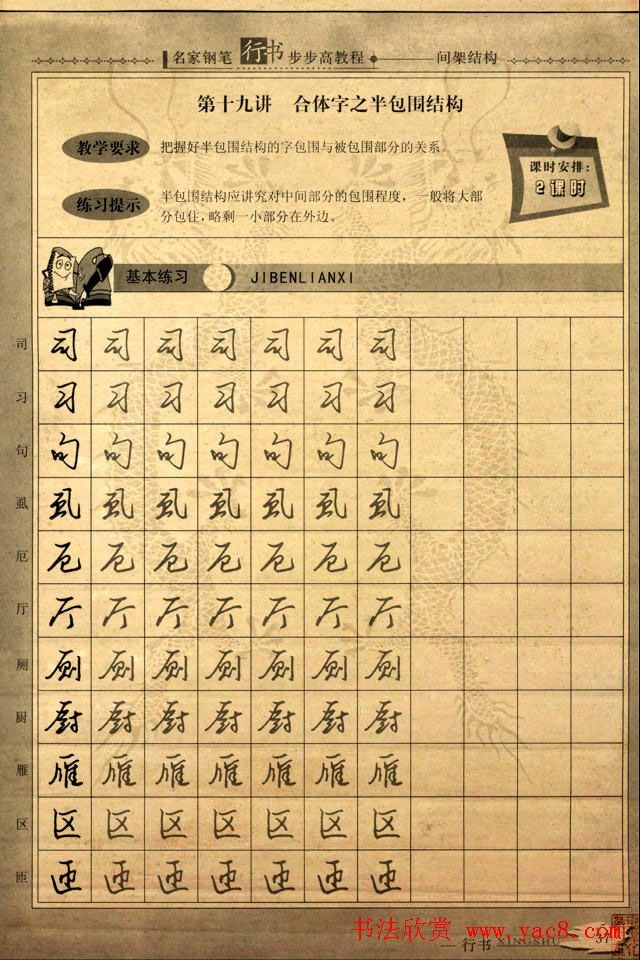 名家钢笔 行书 步步高教程 间架结构
第十九讲 合体字之半包围结构
教学要求 把握好半包围结构的字包围与被包围部分的关系。
课时安排：
2课时
练习提示 半包围结构应讲究对中间部分的包围程度，一般将大部
分包住，略剩一小部分在外边。
基本练习 JIBENLIANXI
司 司 司 司 司 司 司 司
习 习 习 习 习 习 习 习
句 句 句 句 句 句 句 句
虱 虱 虱 虱 虱 虱 虱 虱
厄 厄 厄 厄 厄 厄 厄 厄
厅 厅 厅 厅 厅 厅 厅 厅
厕 厕 厕 厕 厕 厕 厕 厕
厨 厨 厨 厨 厨 厨 厨 厨
雁 雁 雁 雁 雁 雁 雁 雁
区 区 区 区 区 区 区 区
匝 匝 匝 匝 匝 匝 匝 匝
书法欣赏 www.yac8.com
行书 XINGSHU 37